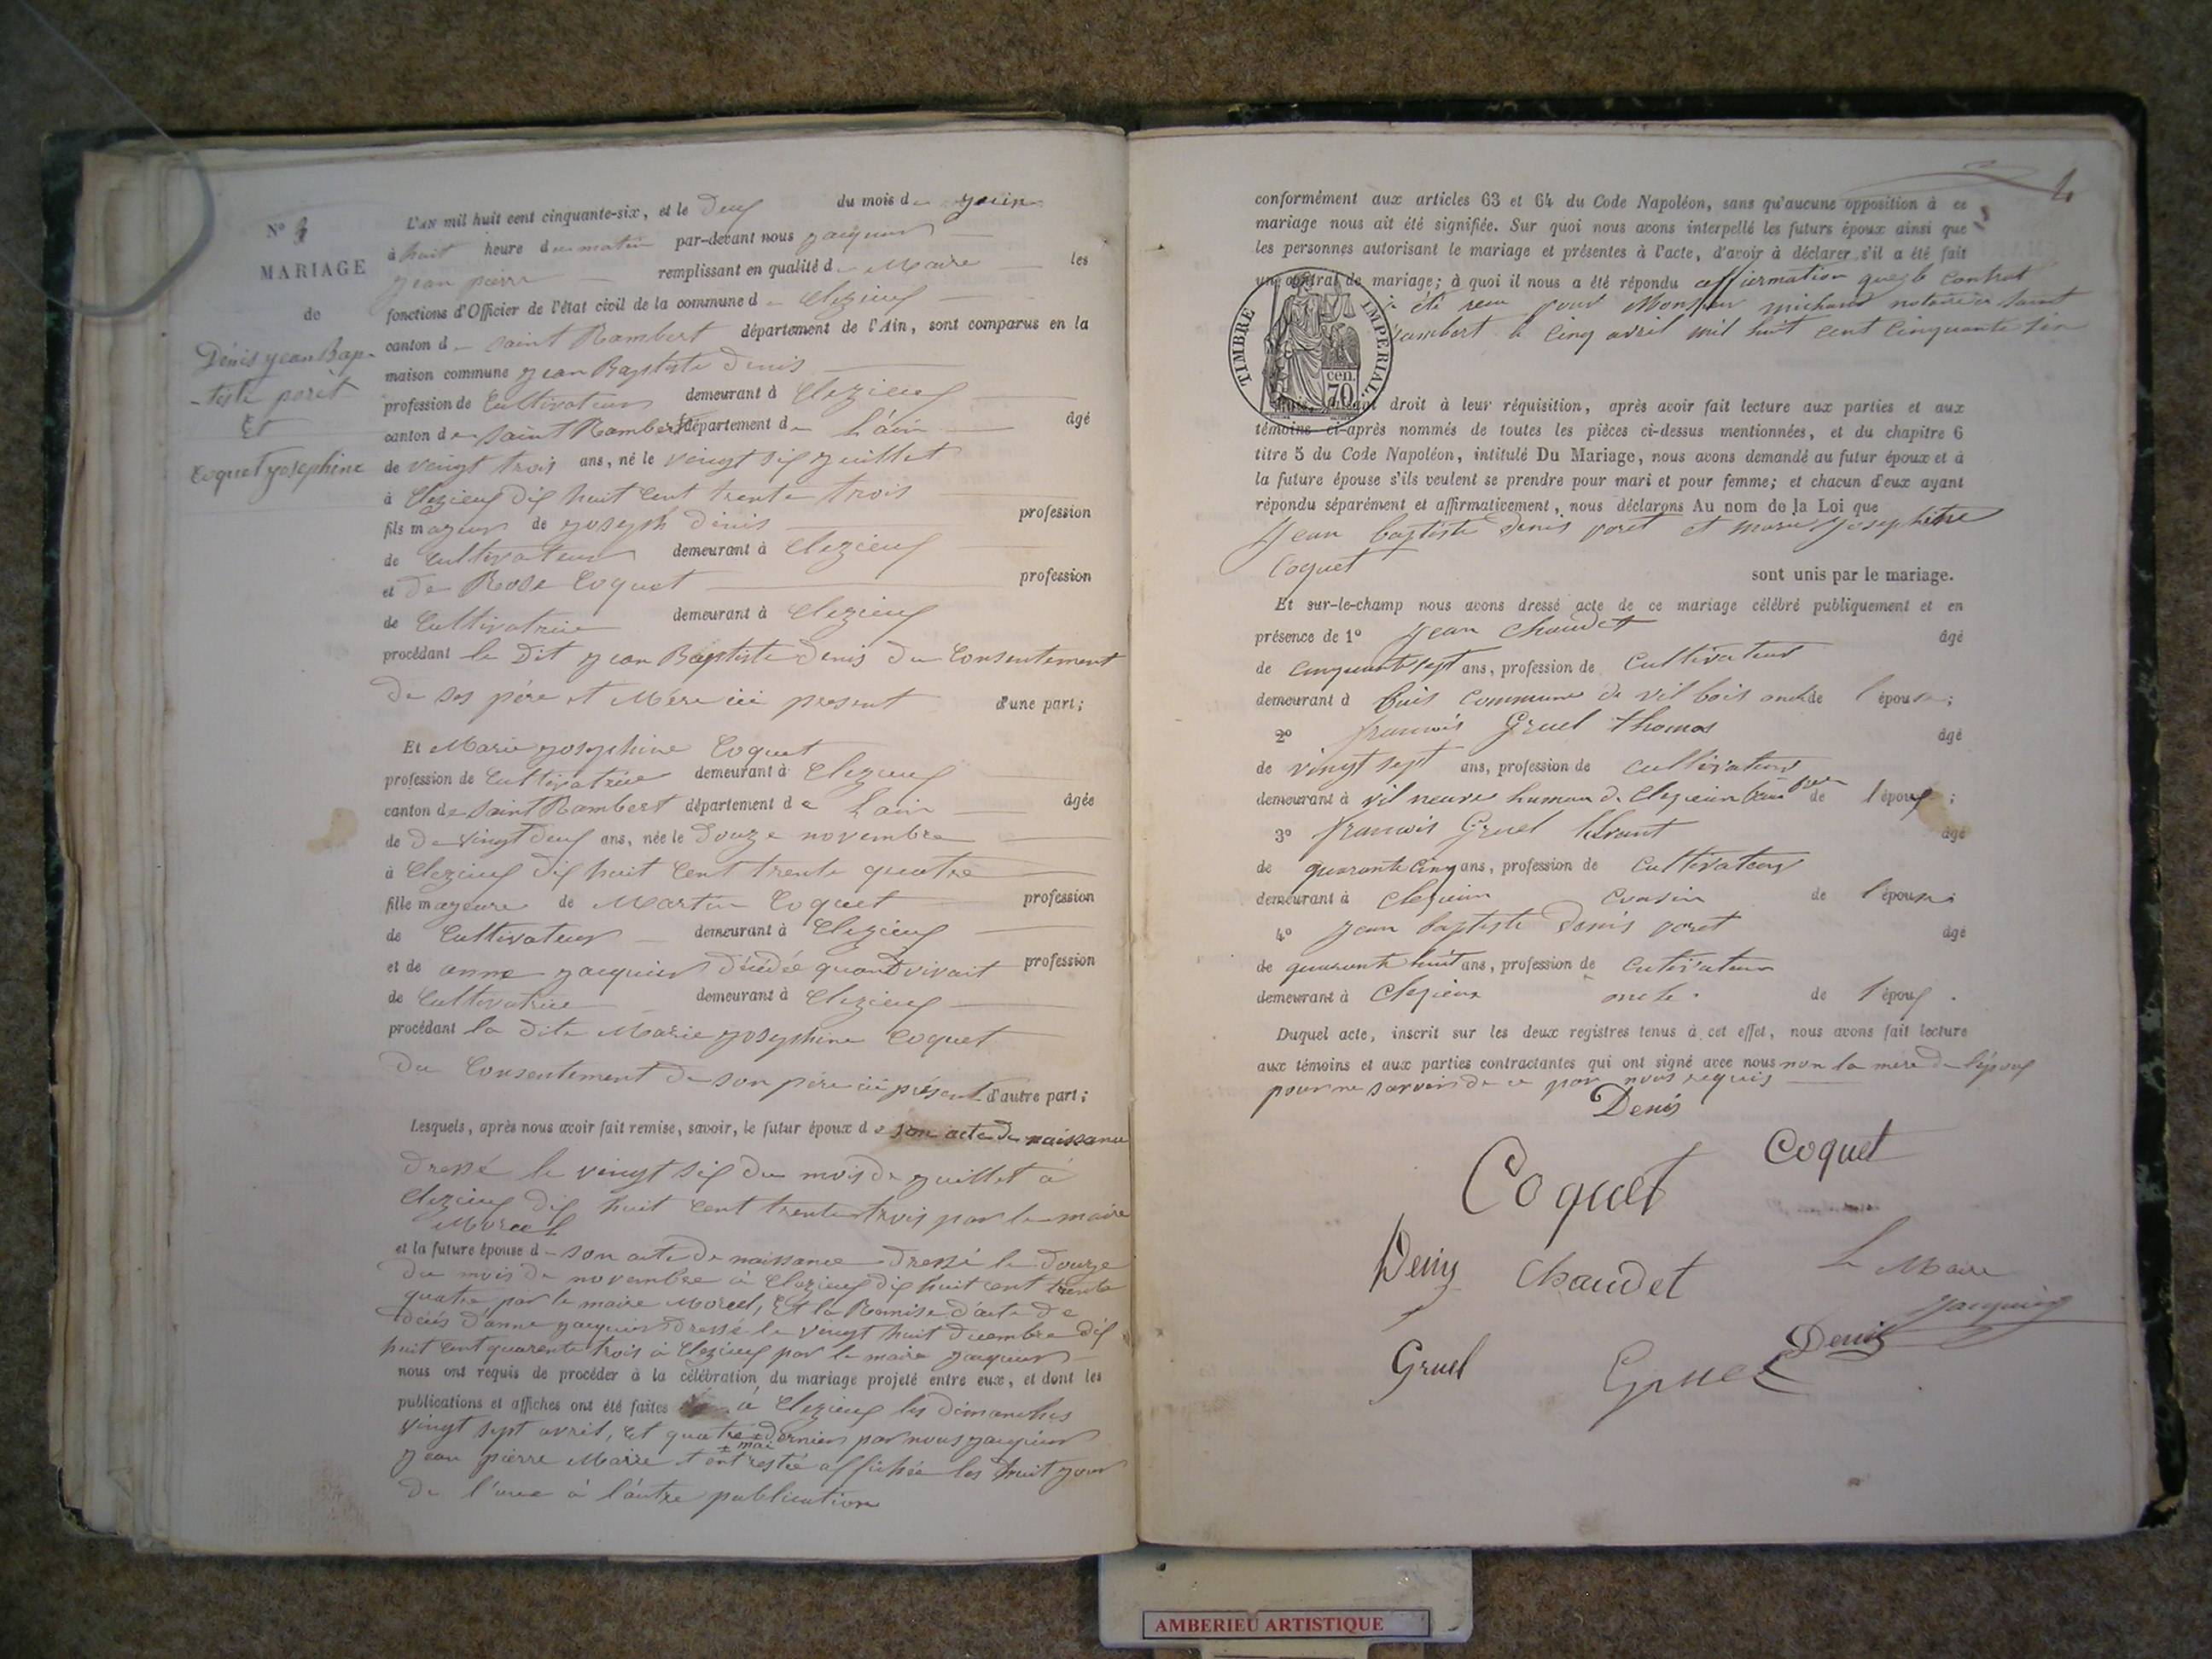 N° 3
MARIAGE
de
Dénis Jean Bap-
-tiste poret
Et
Coquet Josephine
L'AN mil huit cent cinquante-six, et le Deux du mois de Juin
à huit heure du matin par-devant nous Jacquier
Jean pierre remplissant en qualité de Maire les
fonctions d'Officier de l'état civil de la commune d Clezieux
canton de Saint Rambert département de l'Ain, sont comparus en la
maison commune Jean Baptiste Denis
profession de Cultivateur demeurant à Clezieux
canton de Saint Rambert département de L'ain âgé
de vingt trois ans, né le vingt six Juillet
à Clezieux dix huit Cent trente trois
fils majeur de Joseph Dénis profession
de Cultivateur demeurant à Clezieux
et de Rose Coquet profession
de Cultivatrice demeurant à Clezieux
procédant le Dit Jean Baptiste Denis du Consentement
de ses père et Mère ici present d'une part;
Et Marie Josephine Coquet
profession de Cultivatrice demeurant à Clezieux
canton de Saint Rambert département de L'ain âgée
de De vingt deux ans, née le Douze novembre
à Clezieux dix huit Cent trente quatre
fille majeure de Martin Coquet profession
de Cultivateur demeurant à Clezieux
et de anne Jacquier Décédée quand vivait profession
de Cultivatrice demeurant à Clezieux
procédant la dite Marie Josephine Coquet
du Consentement de son père ici présent d'autre part;
Lesquels, après nous avoir fait remise, savoir, le futur époux de son acte de naissance
Dressé le vingt six du mois de Juillet à
Clezieux dix huit Cent trente trois par le maire
Morcel
et la future épouse de son acte de naissance Dressé le Douze
du mois de novembre à Clezieux dix huit cent trente
quatre par le maire Morcel, Et la Remise d'acte de
décès d'anne Jacquier Dressé le vingt huit Decembre dix
huit Cent quarente trois à Clezieux par le maire Jacquier
nous ont requis de procéder à la célébration du mariage projeté entre eux, et dont les
publications et affiches ont été faites à Clezieux les dimanches
vingt sept avril, Et quatre mai dernier par nous Jacquier
Jean pierre Maire et ont resté affichée les huit jour
de l'une à l'autre publication
4
conformément aux articles 63 et 64 du Code Napoléon, sans qu'aucune opposition à ce
mariage nous ait été signifiée. Sur quoi nous avons interpellé les futurs époux ainsi que
les personnes autorisant le mariage et présentes à l'acte, d'avoir à déclarer s'il a été fait
un contrat de mariage; à quoi il nous a été répondu affirmation que le Contrat
à été reçu pour Monsieur michaud notaire à Saint
Rambert le Cinq avril mil huit cent Cinquante six
TIMBRE IMPERIAL.
cen. 70
droit à leur réquisition, après avoir fait lecture aux parties et aux
témoins ci-après nommés de toutes les pièces ci-dessus mentionnées, et du chapitre 6
titre 5 du Code Napoléon, intitulé Du Mariage, nous avons demandé au futur époux et à
la future épouse s'ils veulent se prendre pour mari et pour femme; et chacun d'eux ayant
répondu séparément et affirmativement, nous déclarons Au nom de la Loi que
Jean baptiste Denis poret et marie Josephine
Coquet
sont unis par le mariage.
Et sur-le-champ nous avons dressé acte de ce mariage célébré publiquement et en
présence de 1° Jean Chaudet âgé
de cinquante sept ans, profession de Cultivateur
demeurant à Buis Commune de vil bois oncle de l'épouse;
2° francois Gruel thomas âgé
de vingt sept ans, profession de cultivateur
demeurant à vil neuve hameau de Clezieux de l'époux;
3° francois Gruel âgé
de quarante cinq ans, profession de Cultivateur
demeurant à Clezieux Cousin de l'épouse
4° Jean baptiste Denis poret âgé
de quarante huit ans, profession de Cutivateur
demeurant à Clezieux oncle de l'époux.
Duquel acte, inscrit sur les deux registres tenus à cet effet, nous avons fait lecture
aux témoins et aux parties contractantes qui ont signé avec nous non la mère de l'époux
pour ne savoir de ce par nous requis
Denis
Coquet
Coquet
Denis Chaudet
Le Maire
Jacquier
Denis
Gruel Gruel
AMBERIEU ARTISTIQUE